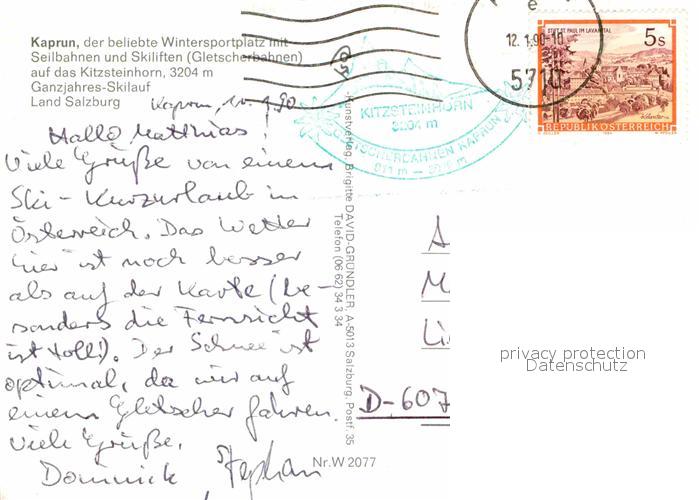 Kaprun, der beliebte Wintersportplatz mit
Seilbahnen und Skiliften (Gletscherbahnen)
auf das Kitzsteinhorn, 3204 m
Ganzjahres-Skilauf
Land Salzburg
Kaprun, 90
Hallo Matthias!
Viele Grüße von einem
Ski-Kurzurlaub in
Österreich. Das Wetter
hier ist noch besser
als auf der Karte (be-
sonders die Fernsicht
ist toll!). Der Schnee ist
optimal, da wir auf
einem Gletscher fahren.
Viele Grüße,
Dominick Stephan
KITZSTEINHORN
3204 m
GLETSCHERBAHNEN KAPRUN
Kunstverlag Brigitte DAVID-GRÜNDLER, A-5013 Salzburg, Postf. 35
Telefon (06 62) 34 3 34
Nr. W 2077
12.1.90-10
5710
STIFT ST. PAUL IM LAVANTTAL
5s
REPUBLIK ÖSTERREICH
A
M
Li
D-607
privacy protection
Datenschutz